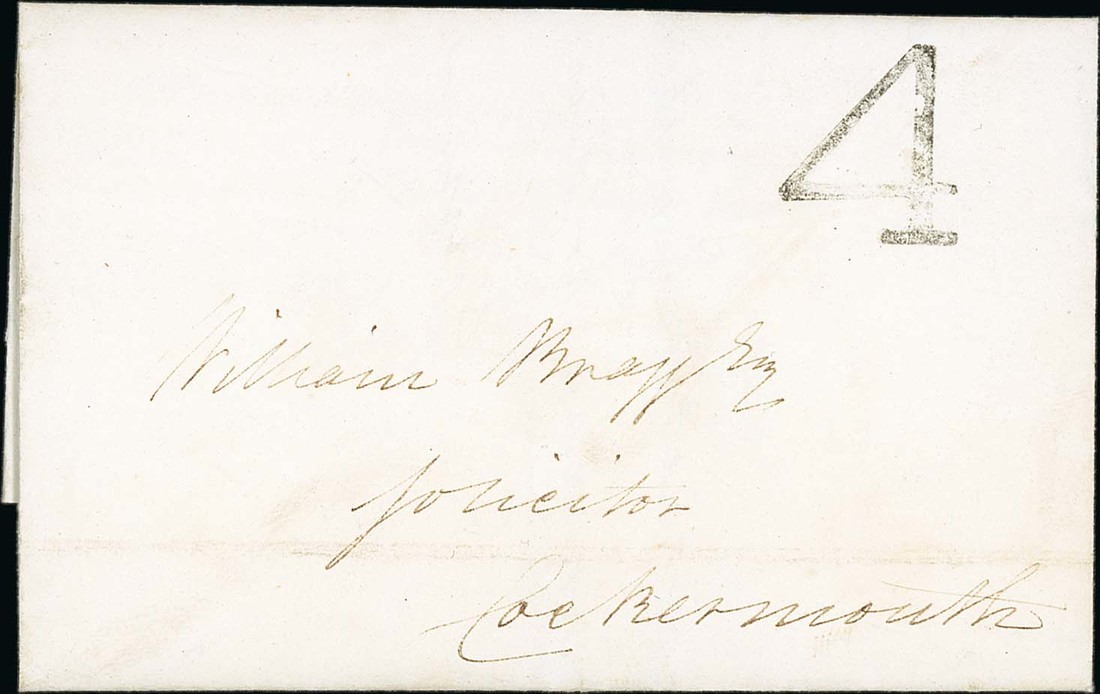 4
William Bragg Esq
Solicitor
Cockermouth